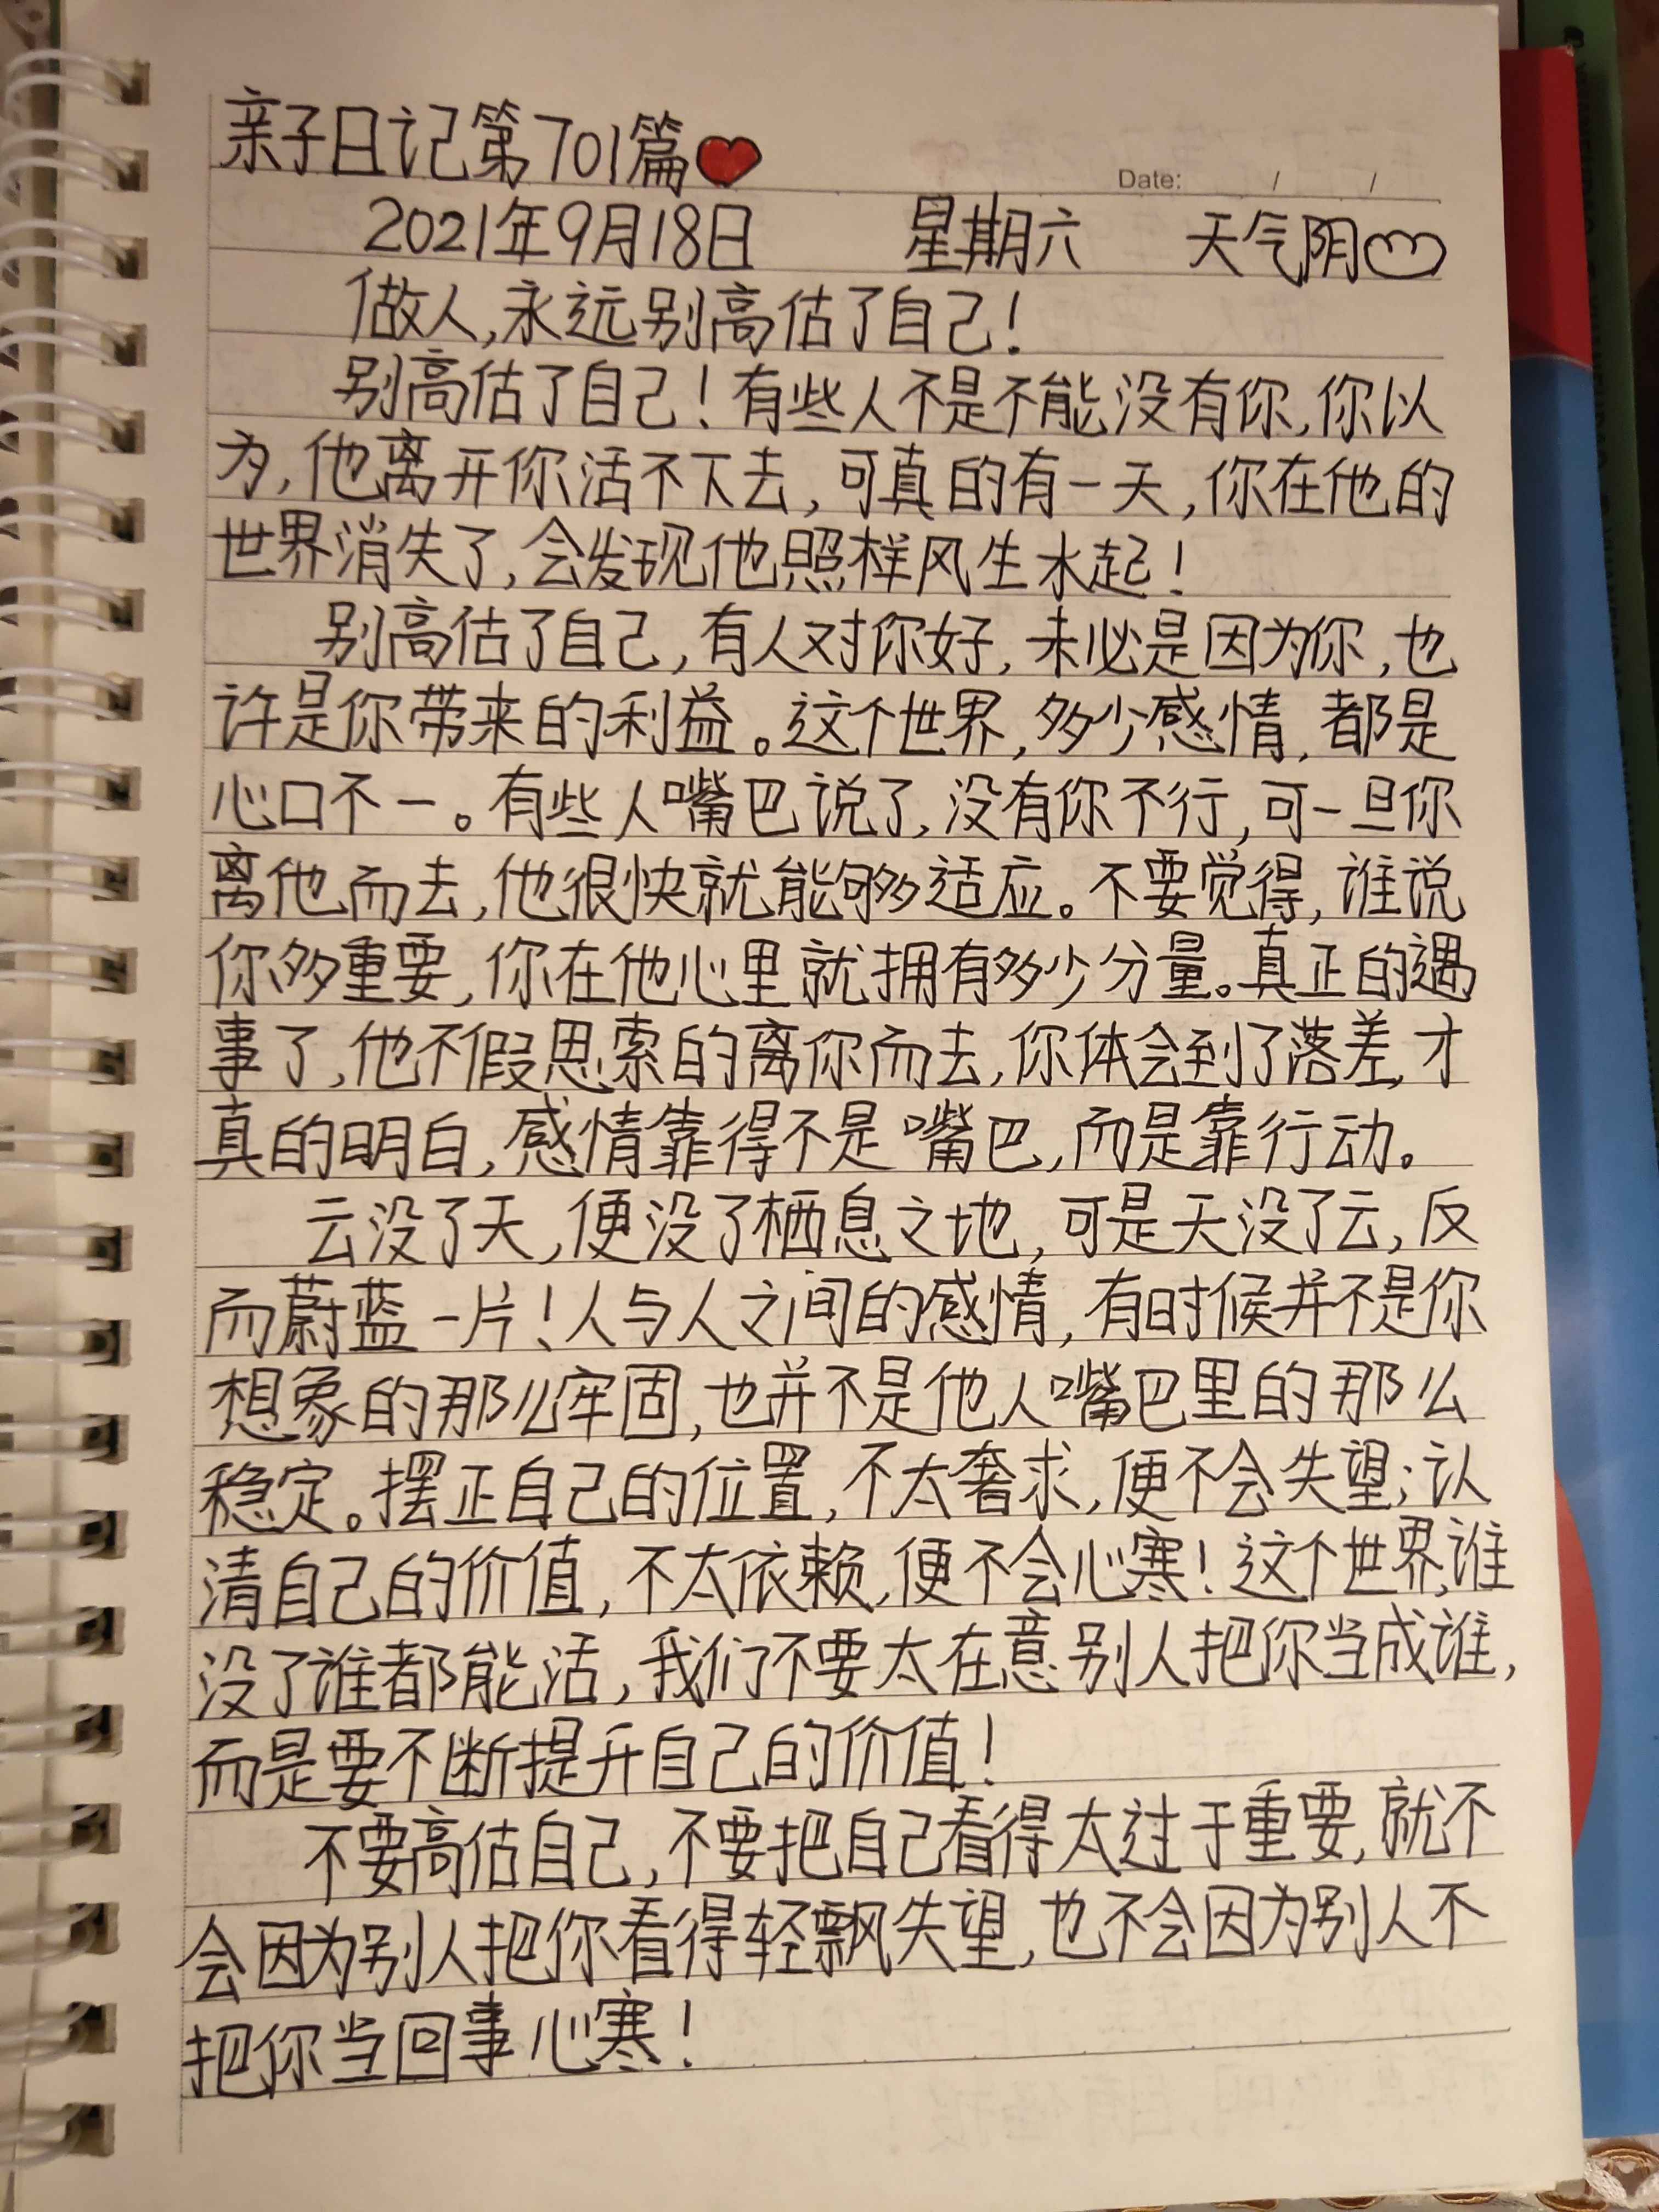 亲子日记第701篇
Date: / /
2021年9月18日 星期六 天气阴
做人,永远别高估了自己!
别高估了自己!有些人不是不能没有你,你以
为,他离开你活不下去,可真的有一天,你在他的
世界消失了,会发现他照样风生水起!
别高估了自己,有人对你好,未必是因为你,也
许是你带来的利益。这个世界,多少感情,都是
心口不一。有些人嘴巴说了,没有你不行,可一旦你
离他而去,他很快就能够适应。不要觉得,谁说
你多重要,你在他心里就拥有多少分量。真正的遇
事了,他不假思索的离你而去,你体会到了落差,才
真的明白,感情靠得不是嘴巴,而是靠行动。
云没了天,便没了栖息之地,可是天没了云,反
而蔚蓝一片!人与人之间的感情,有时候并不是你
想象的那么牢固,也并不是他人嘴巴里的那么
稳定。摆正自己的位置,不太奢求,便不会失望;认
清自己的价值,不太依赖,便不会心寒!这个世界,谁
没了谁都能活,我们不要太在意别人把你当成谁,
而是要不断提升自己的价值!
不要高估自己,不要把自己看得太过于重要,就不
会因为别人把你看得轻飘失望,也不会因为别人不
把你当回事心寒!